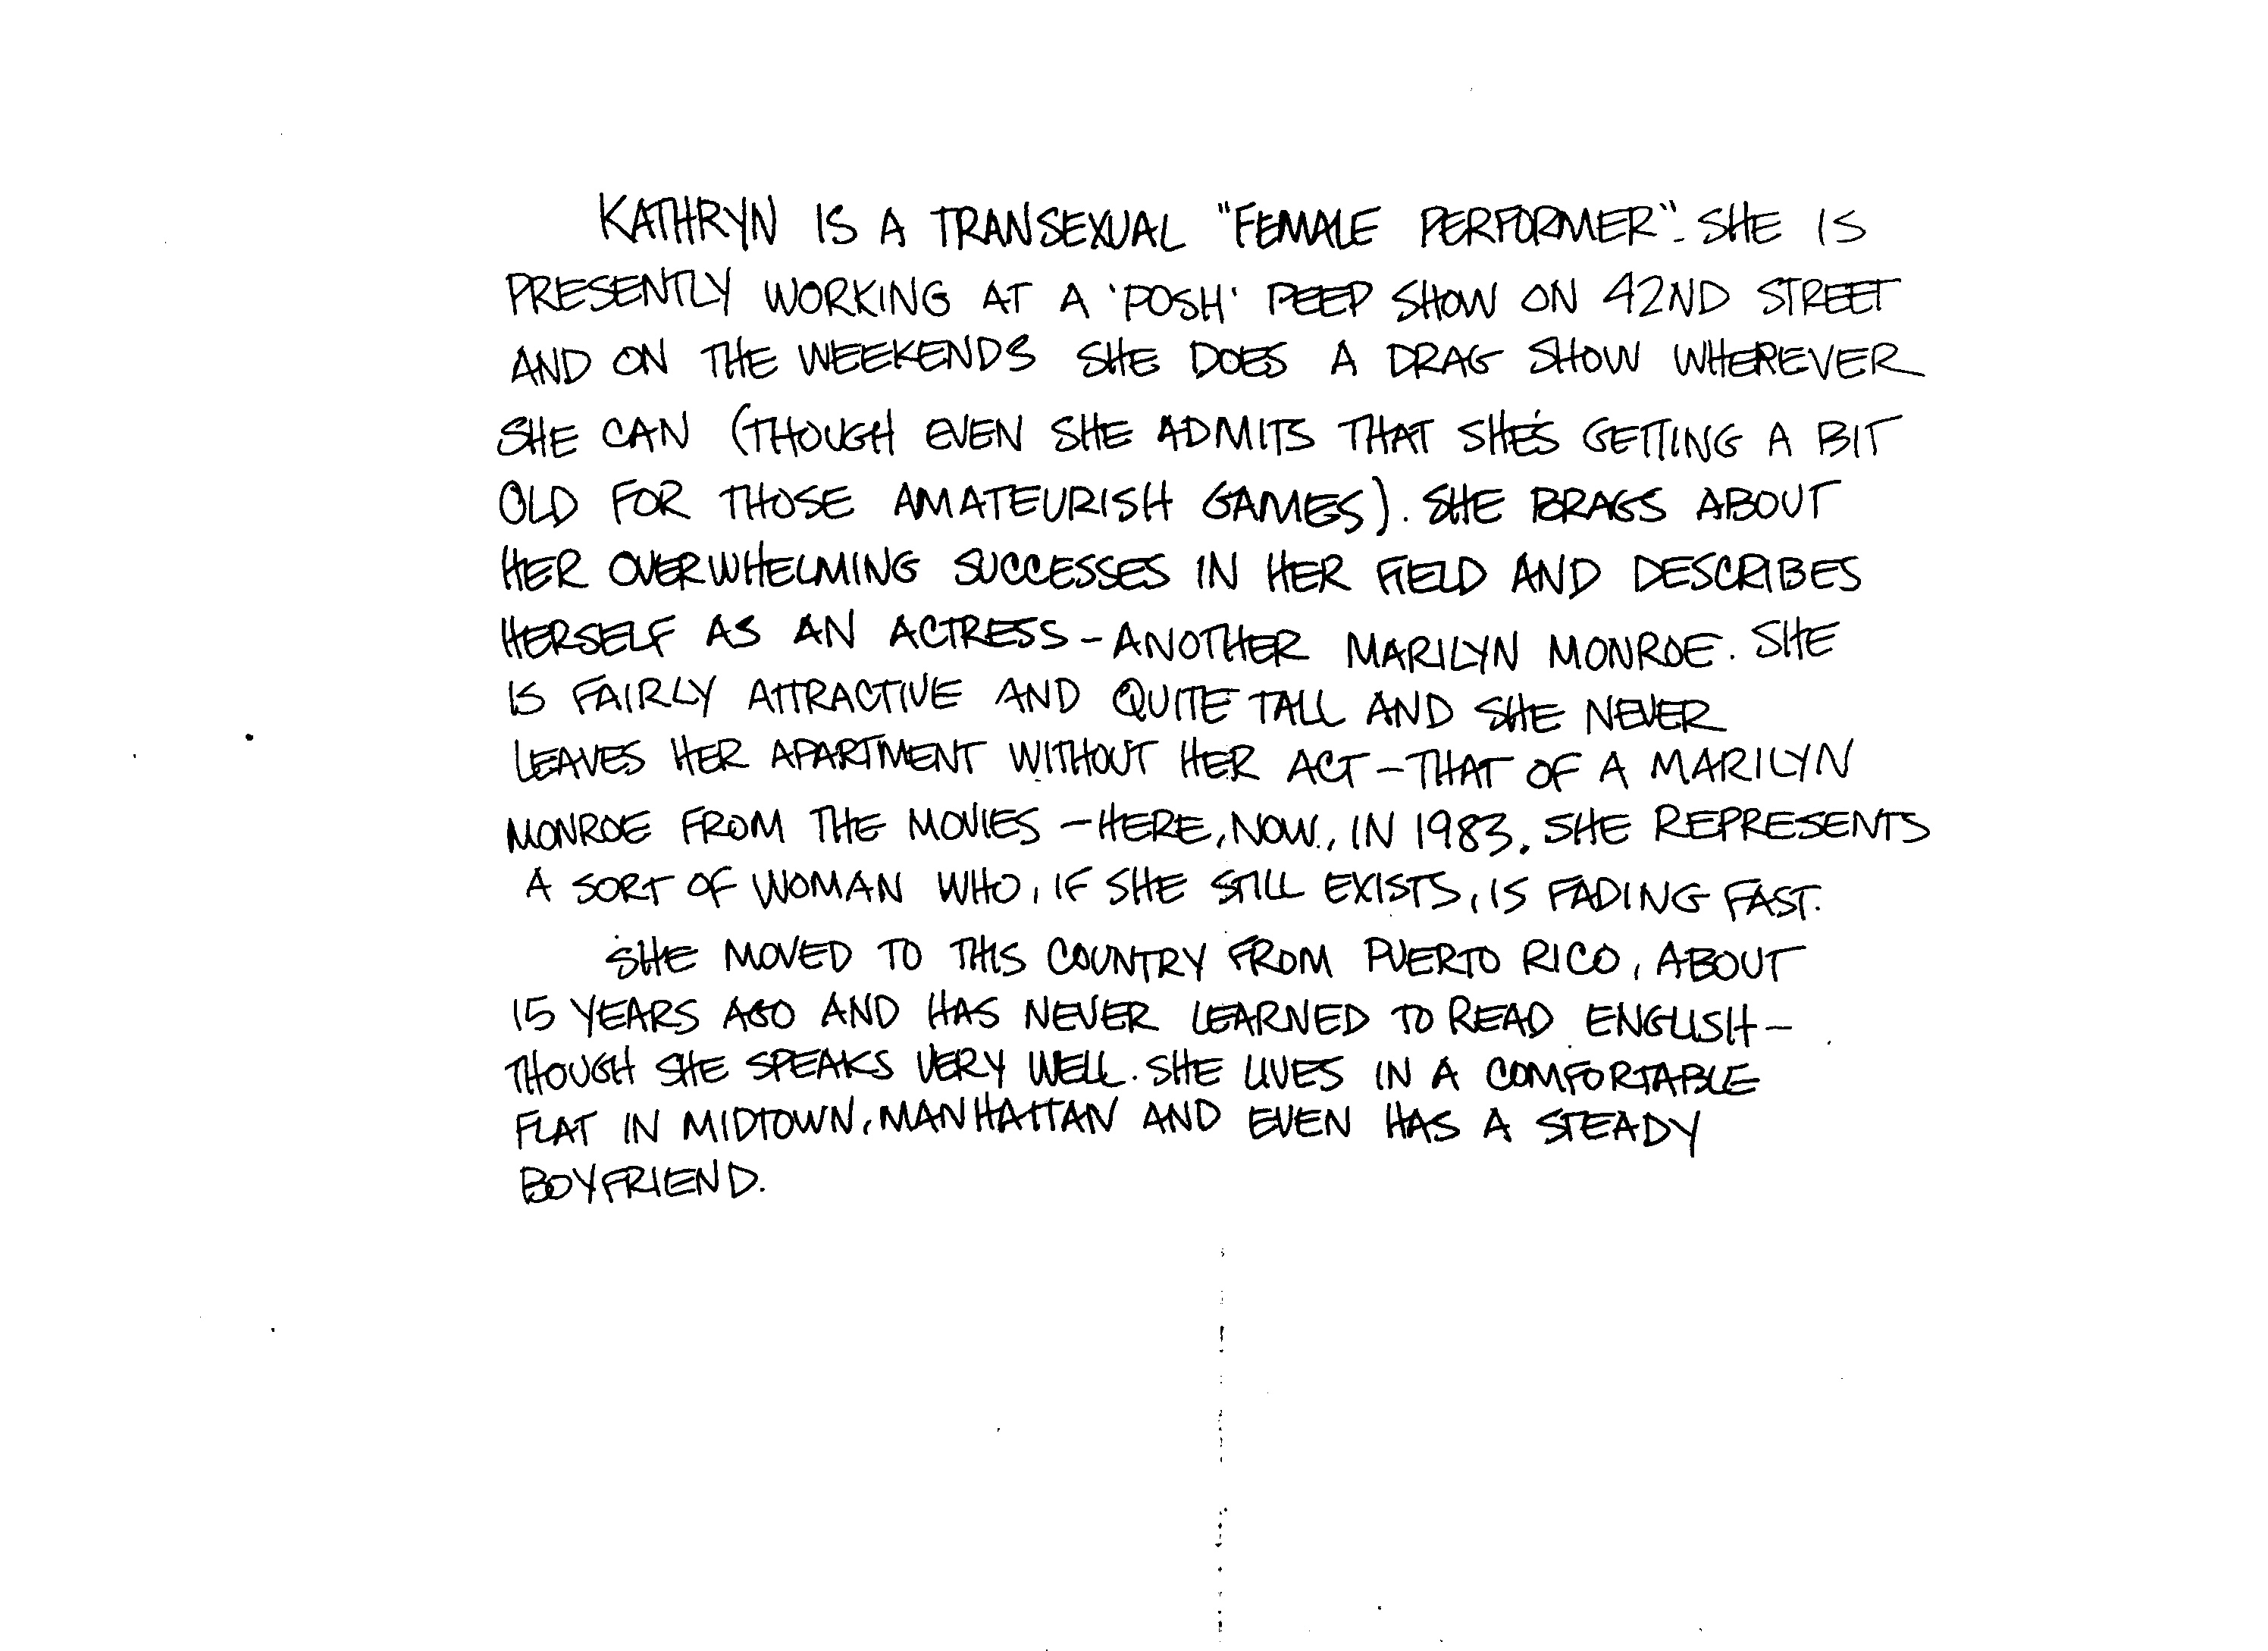 KATHRYN IS A TRANSEXUAL "FEMALE PERFORMER". SHE IS
PRESENTLY WORKING AT A 'POSH' PEEP SHOW ON 42ND STREET
AND ON THE WEEKENDS SHE DOES A DRAG SHOW WHEREVER
SHE CAN (THOUGH EVEN SHE ADMITS THAT SHE'S GETTING A BIT
OLD FOR THOSE AMATEURISH GAMES). SHE BRAGS ABOUT
HER OVERWHELMING SUCCESSES IN HER FIELD AND DESCRIBES
HERSELF AS AN ACTRESS - ANOTHER MARILYN MONROE. SHE
IS FAIRLY ATTRACTIVE AND QUITE TALL AND SHE NEVER
LEAVES HER APARTMENT WITHOUT HER ACT - THAT OF A MARILYN
MONROE FROM THE MOVIES - HERE, NOW, IN 1983, SHE REPRESENTS
A SORT OF WOMAN WHO, IF SHE STILL EXISTS, IS FADING FAST.
SHE MOVED TO THIS COUNTRY FROM PUERTO RICO, ABOUT
15 YEARS AGO AND HAS NEVER LEARNED TO READ ENGLISH -
THOUGH SHE SPEAKS VERY WELL. SHE LIVES IN A COMFORTABLE
FLAT IN MIDTOWN, MANHATTAN AND EVEN HAS A STEADY
BOYFRIEND.